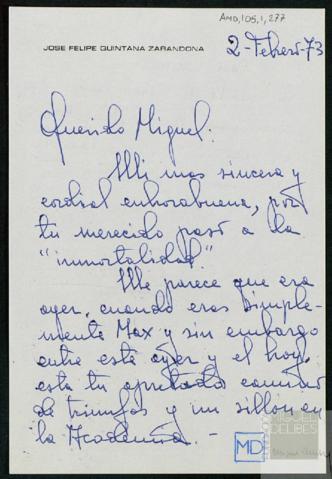 AMD,105,1,277
JOSE FELIPE QUINTANA ZARANDONA
2-Febrero-73
Querido Miguel:
Mi mas sincera y
cordial enhorabuena, por
tu merecido paso a la
"inmortalidad"
Me parece que era
ayer, cuando eras simple-
mente Max y sin embargo
entre este ayer y el hoy
esta tu apretado camino
de triunfos y un sillón en
la Academia. -
MD
MIGUEL
DELIBES